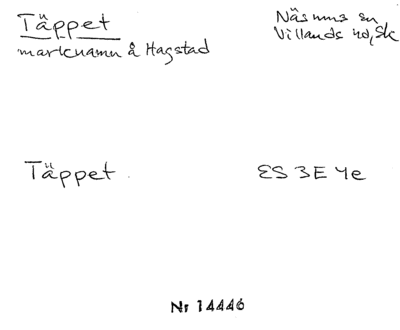 Täppet
marknamn å Hagstad
Näsums sn
Villands hd, Sk
Täppet
ES 3E 4e
Nr 14446